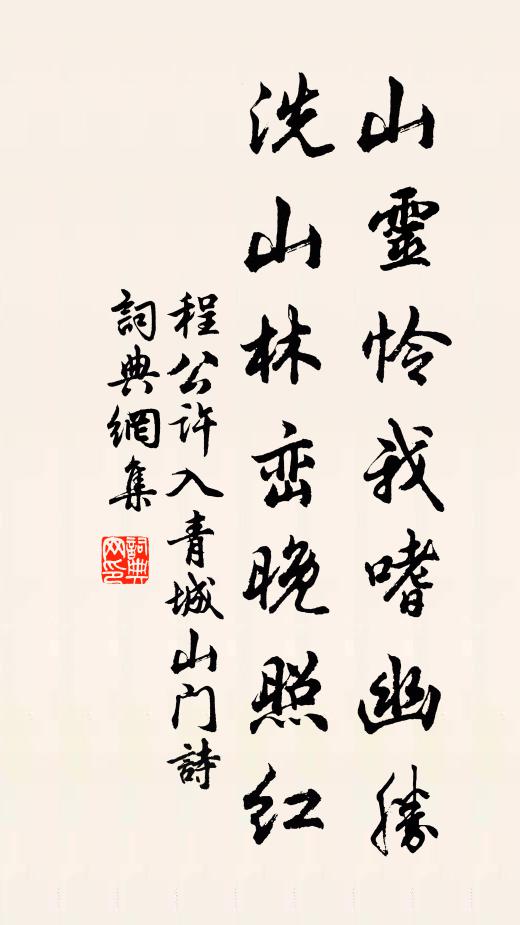 山靈怜我嗜幽勝
洗山林峦晚照红
程公许入青城山门詩
詞典網集
詞典
网印